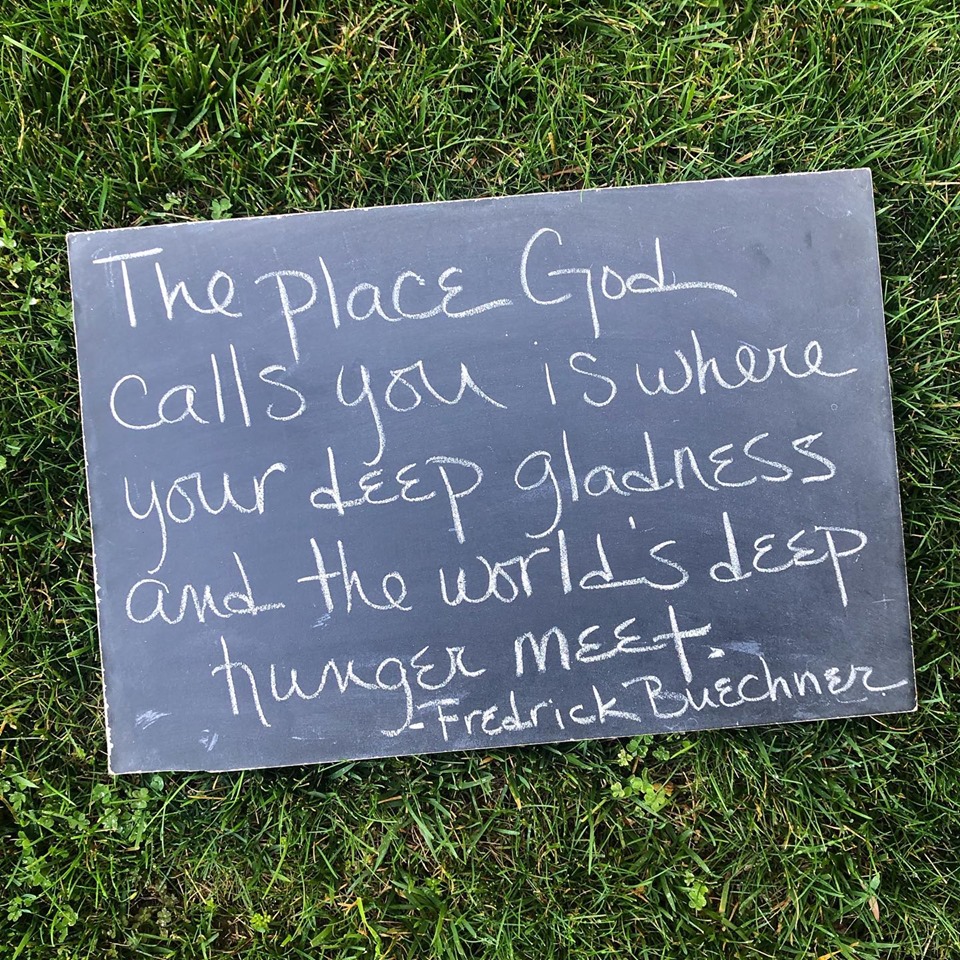 The place God
calls you is where
your deep gladness
and the world's deep
hunger meet.
-Fredrick Buechner